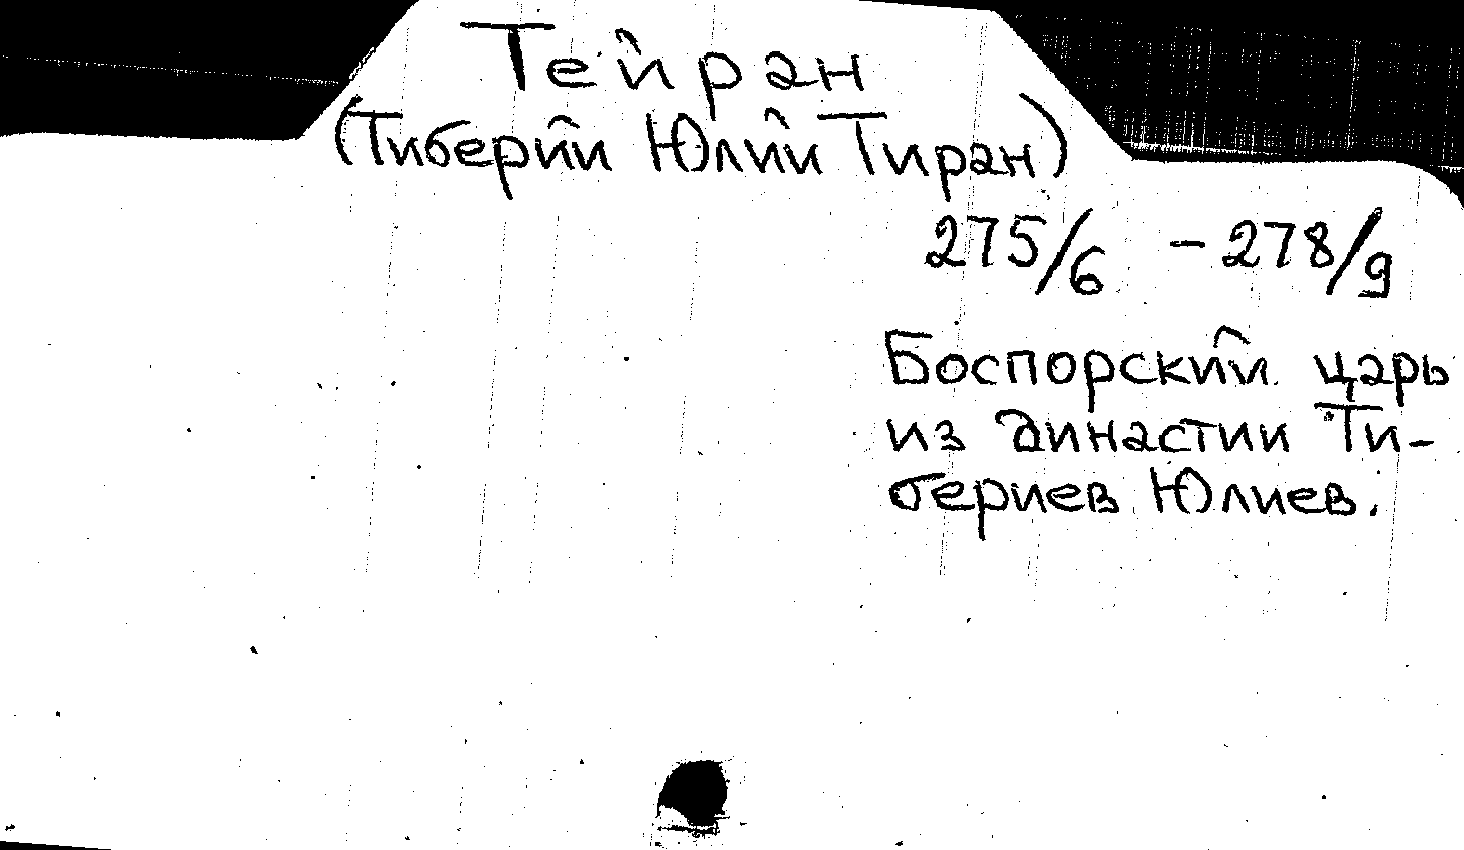 Тейран
(Тиберий Юлий Тиран)
275/6 - 278/9
Боспорский царь
из династии Ти-
бериев Юлиев.